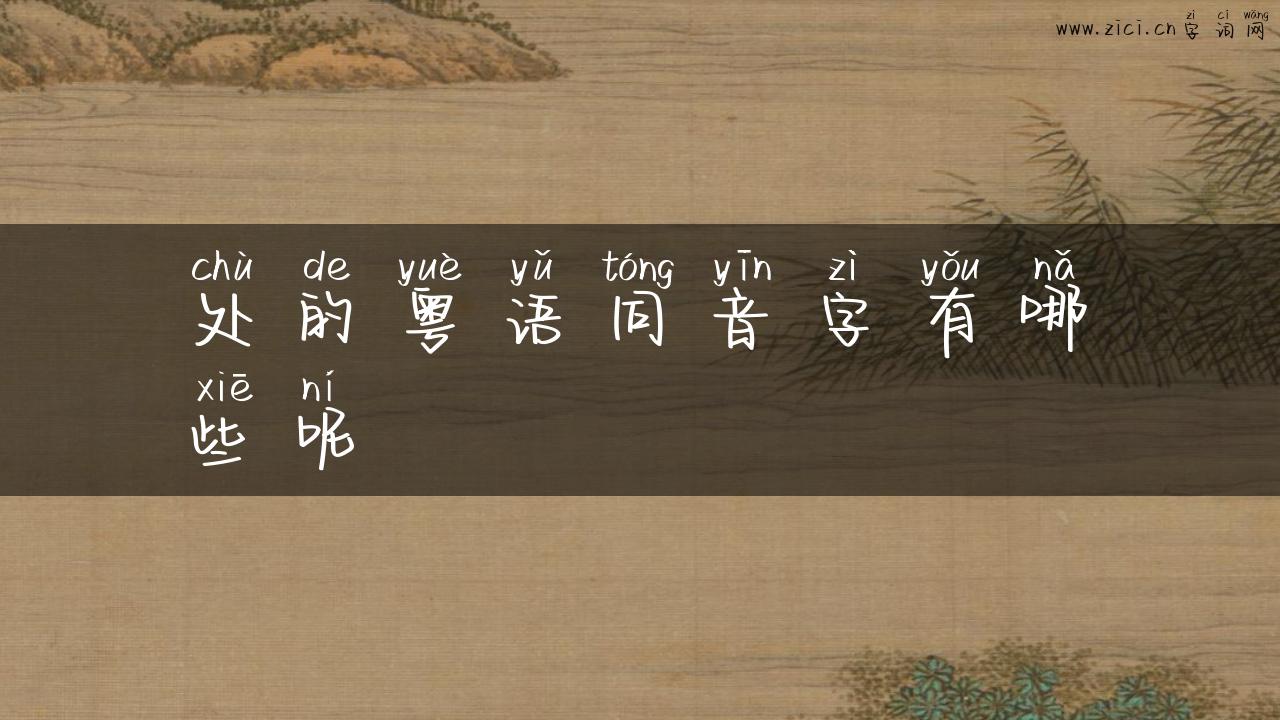 zì cí wǎng
www.zici.cn字词网
chù de yuè yǔ tóng yīn zì yǒu nǎ
处的粤语同音字有哪
xiē ní
些呢